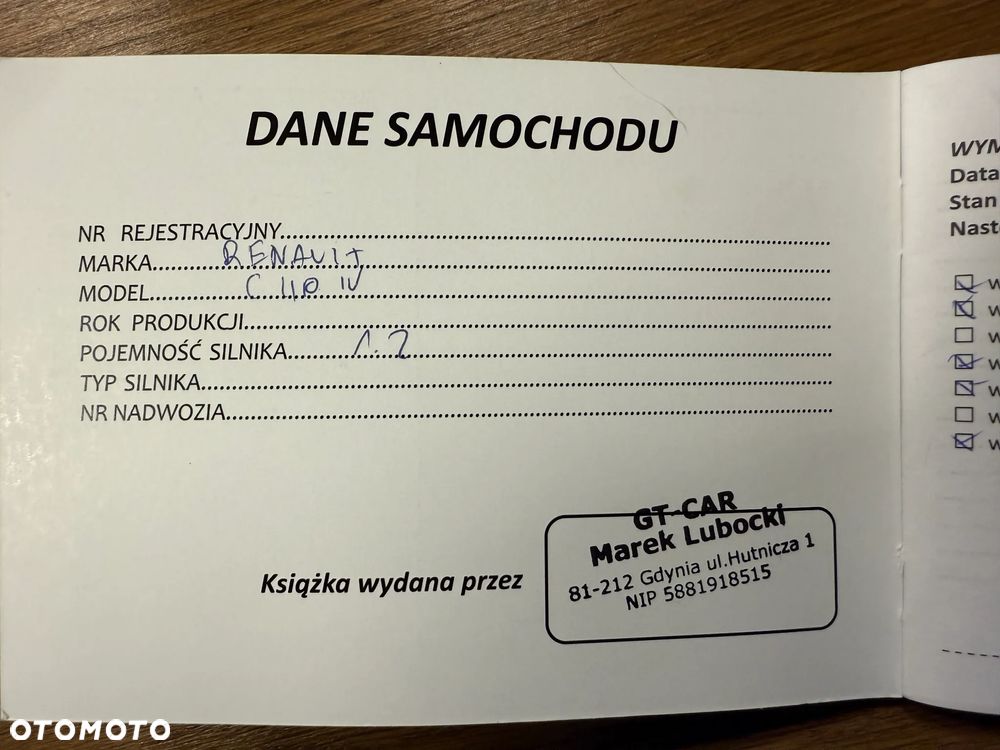 DANE SAMOCHODU
NR REJESTRACYJNY
MARKA RENAULT
MODEL CLIO IV
ROK PRODUKCJI
POJEMNOŚĆ SILNIKA 1.2
TYP SILNIKA
NR NADWOZIA
Książka wydana przez
GT-CAR
Marek Lubocki
81-212 Gdynia ul.Hutnicza 1
NIP 5881918515
WYM
Data
Stan
Nast
w
w
w
w
w
w
w
OTOMOTO